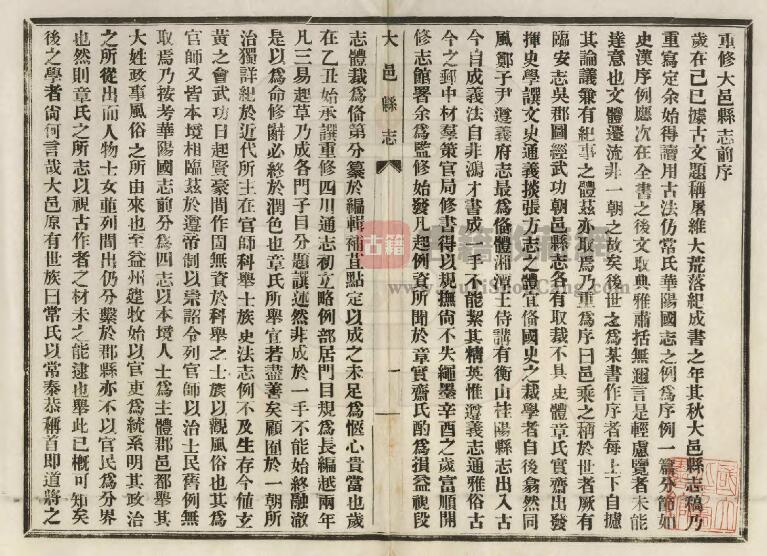 重修大邑縣志前序
歲在己巳據古文題稱屠維大荒落紀成書之年其秋大邑縣志稿乃
重寫定余始得讀用古法仿常氏華陽國志之例爲序例一篇分節如
史漢序例應次在全書之後文取典雅肅括無溷言是輕慮覽者未能
達意也文體遷流非一朝之故矣後世之爲某書作序者每上下自據
其論議兼有紀事之體茲亦取焉乃重爲序曰邑乘之稱於世者厥有
臨安志吳郡圖經武功朝邑縣志各有取裁不具史體章氏實齋出發
揮史學譔文史通義掞張方志之體宜僃國史之裁學者自後翕然同
風鄭子尹遵義府志最爲僃體湘潭王侍講有衡山桂陽縣志出入古
今自成義法自非鴻才書成一手不能絜其精英惟遵義志通雅俗古
今之郵中材羣策官局修書得以規撫尚不失繩墨辛酉之歲富順開
修志館署余爲監修始發凡起例資所聞於章實齋氏酌爲損益視段
大邑縣志
一
志體裁爲僃第分纂於編輯補苴點定以成之未足爲愜心貴當也歲
在乙丑始承譔重修四川通志初立略例部居門目規爲長編越兩年
凡三易起草乃成各門子目分題譔述然非成於一手不能始終融澈
是以爲命修辭必終於潤色也章氏所舉宜若盡善矣顧囿於一朝所
治獨詳紀於近代所主在官師科舉士族史法志例不及生存今値玄
黃之會武功日起賢豪間作固無資於科舉之士族以觀風俗也其爲
官師又皆本境相臨茲於遵帝制以崇詔令列官師以治士民舊例無
取焉乃按考華陽國志前分爲四志以本境人士爲主體郡邑都舉其
大姓政事風俗之所由來也至益州建牧始以官吏爲統系明其政治
之所從出而人物士女並列間出仍分繫於郡縣亦不以官民爲分界
也然則章氏之所志以視古作者之材未之能逮也舉此已槪可知矣
後之學者尚何言哉大邑原有世族曰常氏以常泰恭稱首即道將之